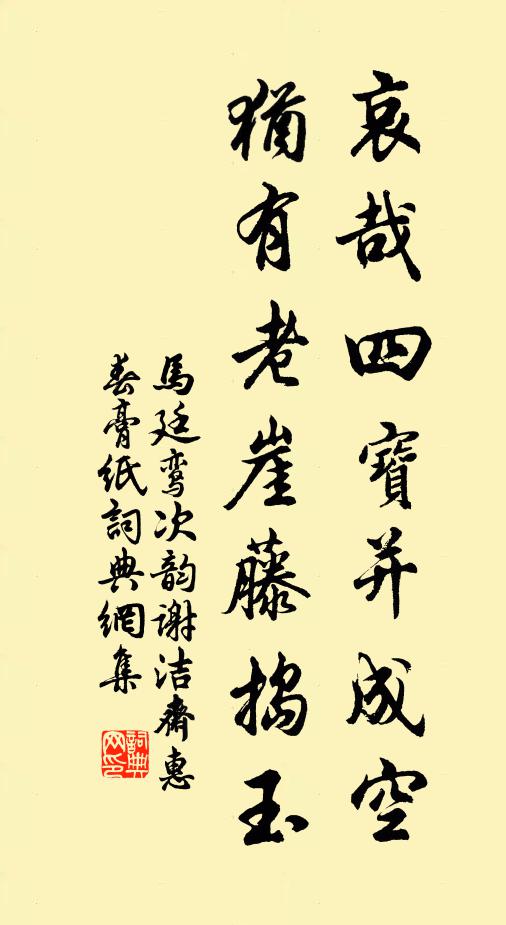 哀哉四寶并成空
猶有老崖藤搗玉
馬廷鸞次韵謝洁齋惠
春膏紙詞典網集
詞典网印